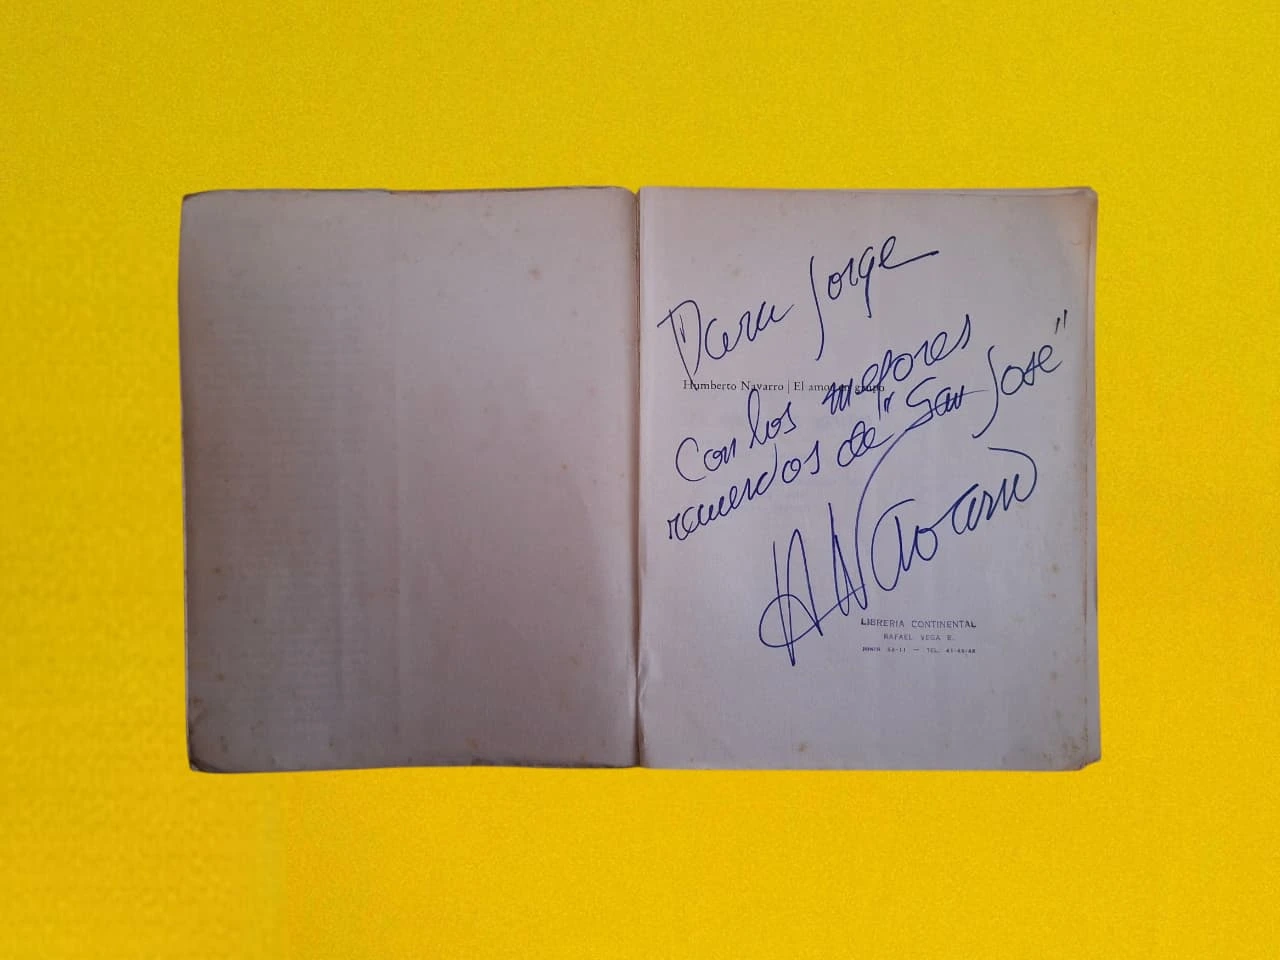 Para Jorge
Humberto Navarro | El amor en grupo
Con los mejores
recuerdos de "San José"
H Navarro
LIBRERIA CONTINENTAL
RAFAEL VEGA B.
JUNIN 52-11 — TEL. 41-48-48